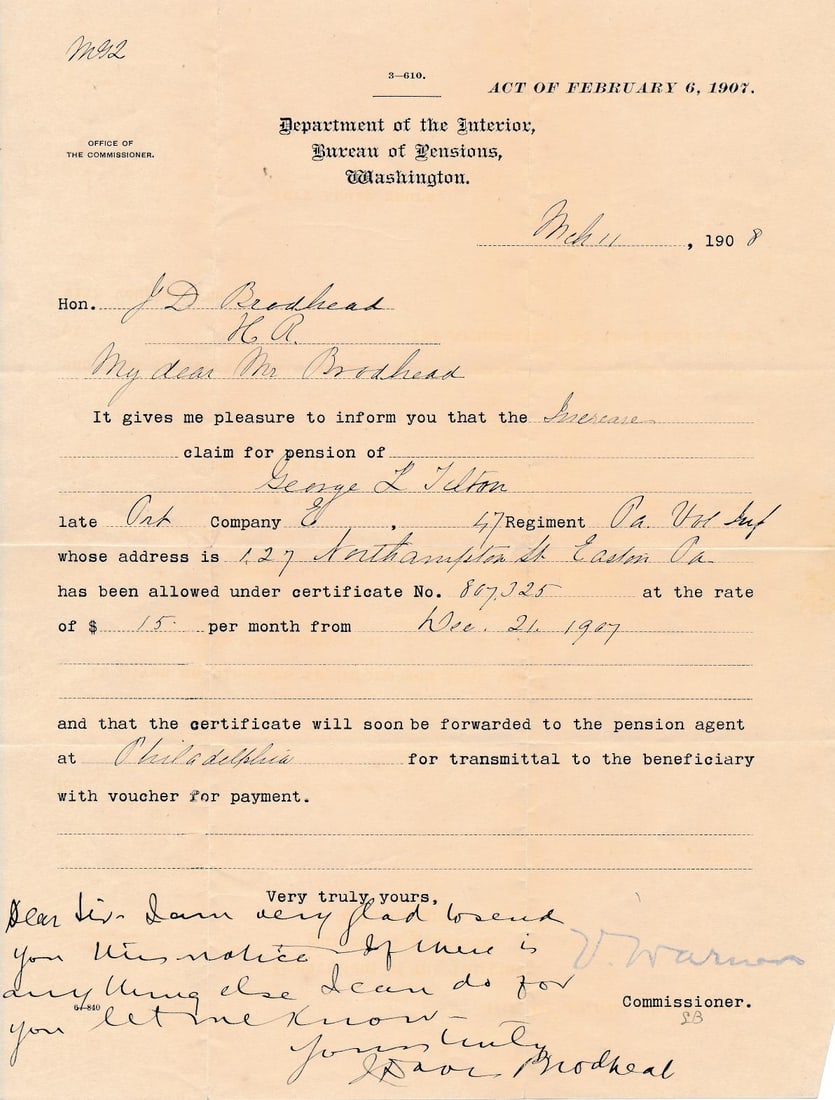 MG2
3—610.
ACT OF FEBRUARY 6, 1907.
Department of the Interior,
Bureau of Pensions,
Washington.
OFFICE OF
THE COMMISSIONER.
Mch 11, 1908
Hon. J D Brodhead
H R.
My dear Mr Brodhead
It gives me pleasure to inform you that the Increase
claim for pension of
George L Tilton
late Company E, 47 Regiment Pa. Vol Inf
whose address is 127 Northampton St Easton Pa
has been allowed under certificate No. 807,325 at the rate
of $ 15 per month from Dec. 21. 1907
and that the certificate will soon be forwarded to the pension agent
at Philadelphia for transmittal to the beneficiary
with voucher for payment.
Very truly yours,
Dear Sir - I am very glad to send
you this notice If there is
any thing else I can do for
you let me know -
V. Warner
Commissioner.
6—840
Yours truly
J Davis Brodhead